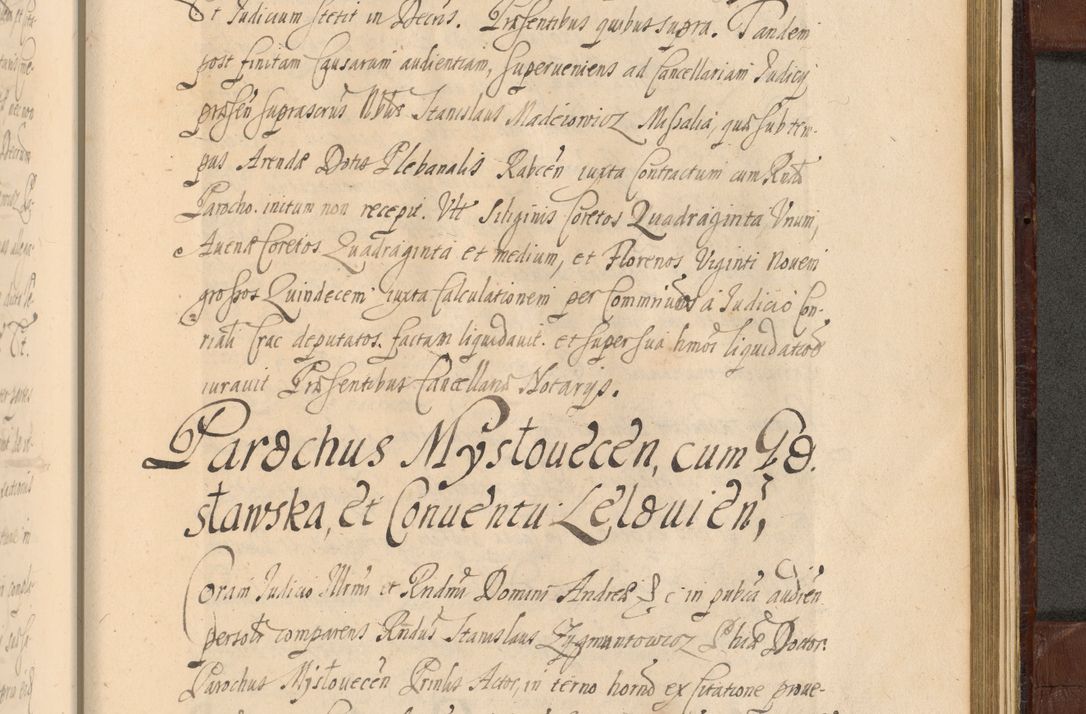 Et Iudicium stetit in Decris. Præsentibus quibus supra. Tandem
post finitam Causarum audientiam, superueniens ad Cancellariam Iudicij
præsen suprascrus Nblis Stanislaus Madeiowicz Missalia, quæ sub tem-
pus Arendæ Dotis Plebanalis Rabcen iuxta Contractum cum Rndo
Parocho initum non recepit. Vtt Siliginis Coretos Quadraginta Vnum,
Auenæ Coretos Quadraginta et medium, et Florenos Viginti Nouem
grossos Quindecem iuxta Calculationem per Commrios à Iudicio Con-
riali Crac deputatos factam liquidauit. et super sua hmoi liquidatione
iurauit Præsentibus Cancellariæ Notarijs.
Parochus Mysłouecen, cum Go-
sławska, et Conuentu Lelouien,
Coram Iudicio Illrmi et Rndmi Domini Andreæ &c in publica audien
personlr comparens Rndus Stanislaus Zygmuntowicz Phiæ Doctor
Parochus Mysłouecen Prinlis Actor, in terno horno ex Citatione proue-